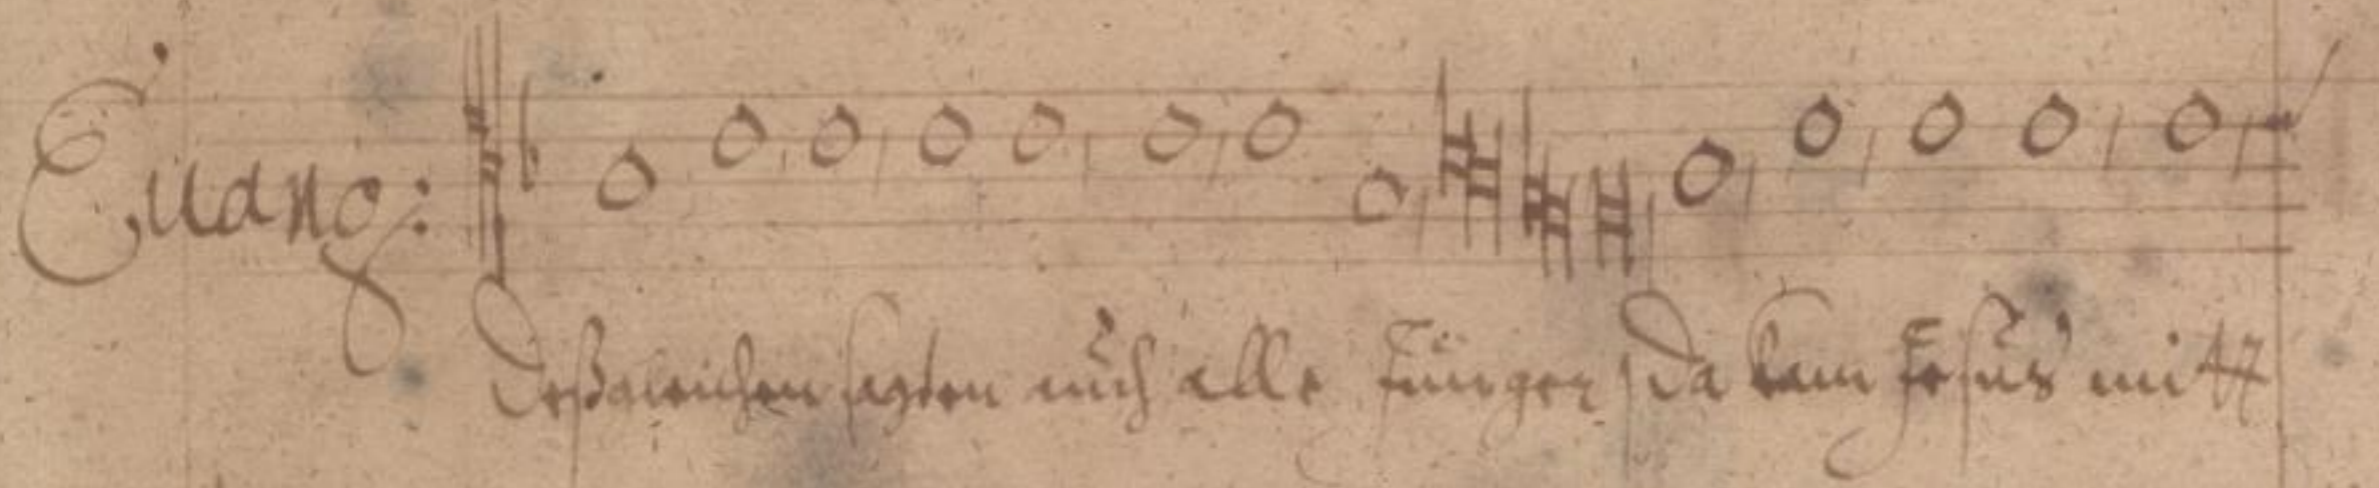 Euang:
Deßgleichen sagten auch alle Jünger Da kam Jesus mitt